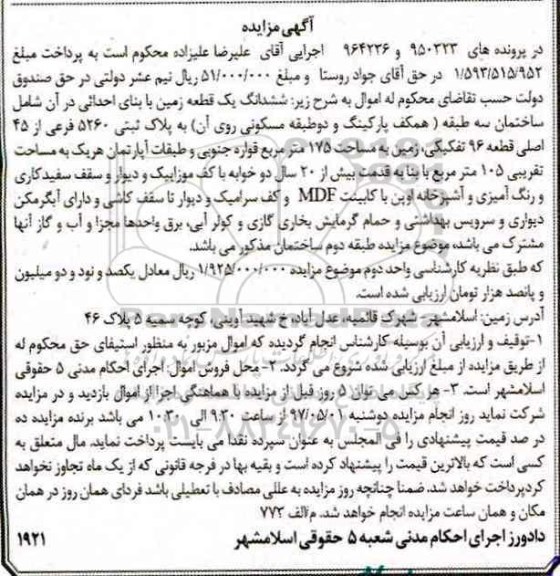 آگهی مزایده
در پرونده های ۹۵۰۲۲۳ و ۹۶۴۲۳۶ اجرایی آقای علیرضا علیزاده محکوم است به پرداخت مبلغ
۱/۵۹۳/۵۱۵/۹۵۲ در حق آقای جواد روستا و مبلغ ۵۱/۰۰۰/۰۰۰ ریال نیم عشر دولتی در حق صندوق
دولت حسب تقاضای محکوم له اموال به شرح زیر: ششدانگ یک قطعه زمین با بنای احداثی در آن شامل
ساختمان سه طبقه ( همکف پارکینگ و دوطبقه مسکونی روی آن) به پلاک ثبتی ۵۲۶۰ فرعی از ۴۵
اصلی قطعه ۹۶ تفکیکی، زمین به مساحت ۱۷۵ متر مربع قواره جنوبی و طبقات آپارتمان هریک به مساحت
تقریبی ۱۰۵ متر مربع با بنا به قدمت بیش از ۲۰ سال دو خوابه با کف موزاییک و دیوار و سقف سفیدکاری
و رنگ آمیزی و آشپزخانه اوپن با کابینت MDF و کف سرامیک و دیوار تا سقف کاشی و دارای آبگرمکن
دیواری و سرویس بهداشتی و حمام گرمایش بخاری گازی و کولر آبی، برق واحدها مجزا و آب و گاز آنها
مشترک می باشد، موضوع مزایده طبقه دوم ساختمان مذکور می باشد.
که طبق نظریه کارشناسی واحد دوم موضوع مزایده ۱/۹۲۵/۰۰۰/۰۰۰ ریال معادل یکصد و نود و دو میلیون
و پانصد هزار تومان ارزیابی شده است.
آدرس زمین: اسلامشهر، شهرک قائمیه، عدل آباد، خ شهید آوینی، کوچه سمیه ۵ پلاک ۴۶
۱-توقیف و ارزیابی آن بوسیله کارشناس انجام گردیده که اموال مزبور به منظور استیفای حق محکوم له
از طریق مزایده از مبلغ ارزیابی شده شروع می گردد. ۲- محل فروش اموال: اجرای احکام مدنی ۵ حقوقی
اسلامشهر است. ۳- هر کس می توان ۵ روز قبل از مزایده با هماهنگی اجرا از اموال بازدید و در مزایده
شرکت نماید روز انجام مزایده دوشنبه ۹۷/۰۵/۰۱ از ساعت ۹:۳۰ الی ۱۰:۳۰ می باشد برنده مزایده ده
در صد قیمت پیشنهادی را فی المجلس به عنوان سپرده نقدا می بایست پرداخت نماید. مال متعلق به
کسی است که بالاترین قیمت را پیشنهاد کرده است و بقیه بها در فرجه قانونی که از یک ماه تجاوز نخواهد
کردپرداخت خواهد شد. ضمنا چنانچه روز مزایده به عللی مصادف با تعطیلی باشد فردای همان روز در همان
مکان و همان ساعت مزایده انجام خواهد شد. م/الف ۷۷۲
دادورز اجرای احکام مدنی شعبه ۵ حقوقی اسلامشهر ۱۹۲۱